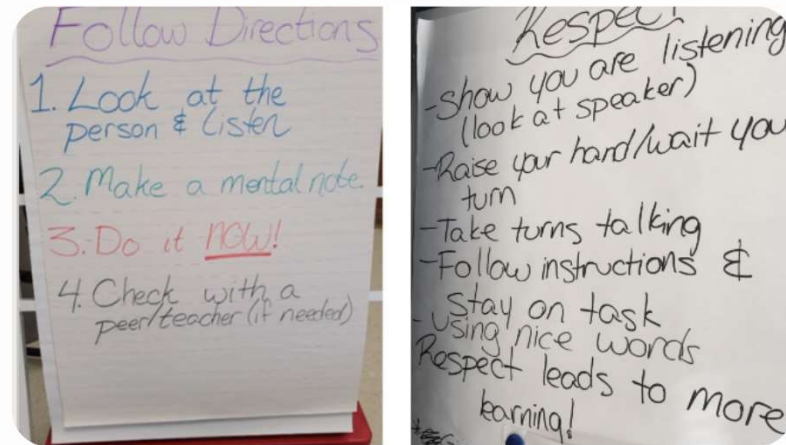 Follow Directions
1. Look at the
person & Listen
2. Make a mental note.
3. Do it now!
4. Check with a
peer/teacher (if needed)
Respect
-Show you are listening
(look at speaker)
-Raise your hand/wait you
turn
-Take turns talking
-Follow instructions &
stay on task
-using nice words
Respect leads to more
learning!